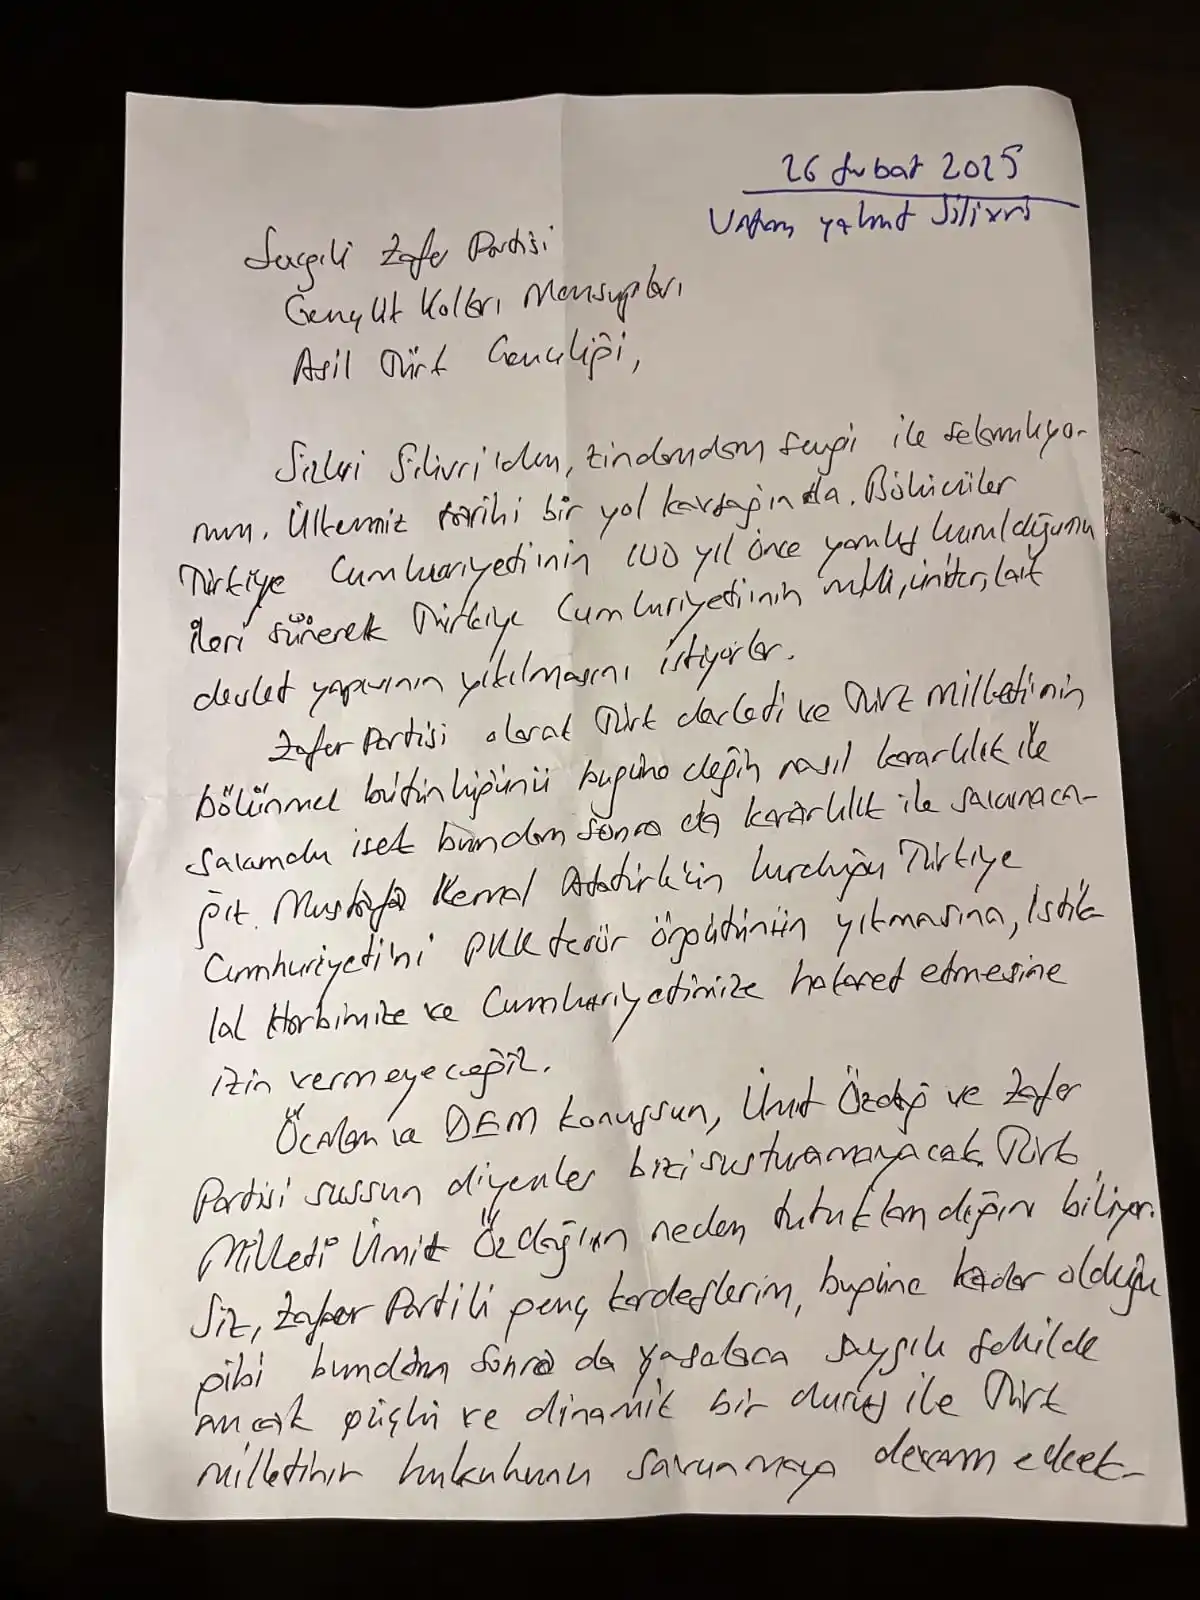 26 Şubat 2025
Vatan yahut Silivri
Sevgili Zafer Partisi
Gençlik Kolları Mensupları
Asil Türk Gençliği,
Sizleri Silivri'den, zindandan sevgi ile selamlıyo-
rum. Ülkemiz tarihi bir yol kavşağında. Bölücüler
Türkiye Cumhuriyeti'nin 100 yıl önce yanlış kurulduğunu
ileri sürerek Türkiye Cumhuriyeti'nin milli, üniter, laik
devlet yapısının yıkılmasını istiyorlar.
Zafer Partisi olarak Türk devleti ve Türk Milletinin
bölünmez bütünlüğünü bugüne değin nasıl kararlılık ile
savundu isek bundan sonra da kararlılık ile savunaca-
ğız. Mustafa Kemal Atatürk'ün kurduğu Türkiye
Cumhuriyeti'ni PKK terör örgütünün yıkmasına, İstik-
lal Harbimize ve Cumhuriyetimize hakaret etmesine
izin vermeyeceğiz.
Öcalan ve DEM konuşsun, Ümit Özdağ ve Zafer
Partisi sussun diyenler bizi susturamayacak. Türk
Milleti Ümit Özdağ'ın neden tutuklandığını biliyor.
Siz, Zafer Partili genç kardeşlerim, bugüne kadar olduğu
gibi bundan sonra da yasalara saygılı şekilde
ancak güçlü ve dinamik bir duruş ile Türk
milletinin hukukunu savunmaya devam edecek-